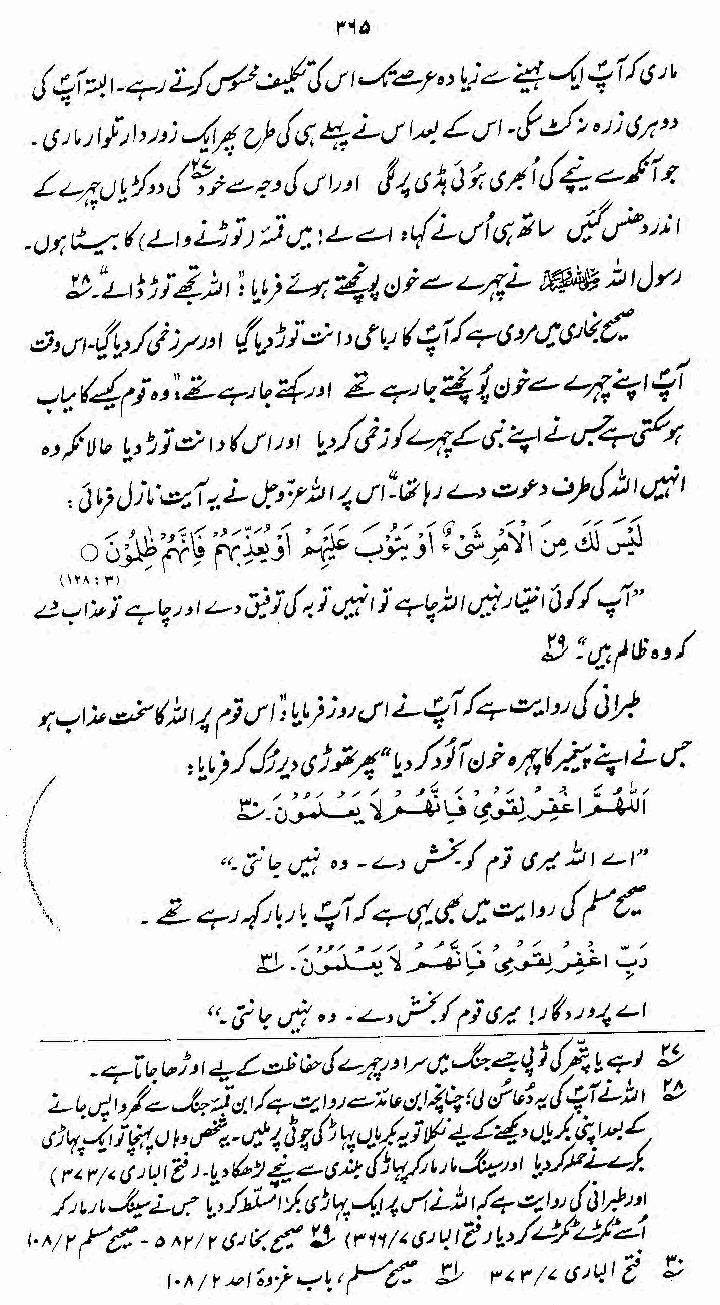 ۳۶۵
ماری کہ آپؐ ایک مہینے سے زیادہ عرصے تک اس کی تکلیف محسوس کرتے رہے۔ البتہ آپؐ کی
دوہری زرہ نہ کٹ سکی۔ اس کے بعد اس نے پہلے ہی کی طرح پھر ایک زوردار تلوار ماری۔
جو آنکھ سے نیچے کی اُبھری ہوئی ہڈی پر لگی اور اس کی وجہ سے خود ۲۷ کی دو کڑیاں چہرے کے
اندر دھنس گئیں ساتھ ہی اُس نے کہا؛ اسے لے! میں قمئہ (توڑنے والے) کا بیٹا ہوں۔
رسول اللہ ﷺ نے چہرے سے خون پونچھتے ہوئے فرمایا؛ "اللہ تجھے توڑ ڈالے"۔ ۲۸
صحیح بخاری میں مروی ہے کہ آپؐ کا رباعی دانت توڑ دیا گیا اور سر زخمی کر دیا گیا۔ اس وقت
آپؐ اپنے چہرے سے خون پُونچھتے جا رہے تھے اور کہتے جا رہے تھے؛ "وہ قوم کیسے کامیاب
ہو سکتی ہے جس نے اپنے نبی کے چہرے کو زخمی کر دیا اور اس کا دانت توڑ دیا حالانکہ وہ
انہیں اللہ کی طرف دعوت دے رہا تھا۔" اس پر اللہ عزّ وجل نے یہ آیت نازل فرمائی:
لَيْسَ لَكَ مِنَ الْاَمْرِ شَيْءٌ اَوْ يَتُوْبَ عَلَيْهِمْ اَوْ يُعَذِّبَهُمْ فَاِنَّهُمْ ظٰلِمُوْنَ ○
(۳ : ۱۲۸)
"آپ کو کوئی اختیار نہیں اللہ چاہے تو انہیں توبہ کی توفیق دے اور چاہے تو عذاب دے
کہ وہ ظالم ہیں"۔ ۲۹
طبرانی کی روایت ہے کہ آپؐ نے اس روز فرمایا؛ "اس قوم پر اللہ کا سخت عذاب ہو
جس نے اپنے پیغمبر کا چہرہ خون آلود کر دیا" پھر تھوڑی دیر رُک کر فرمایا:
اَللّٰهُمَّ اغْفِرْ لِقَوْمِیْ فَاِنَّهُمْ لَا يَعْلَمُوْنَ۔ ۳۰
"اے اللہ میری قوم کو بخش دے۔ وہ نہیں جانتی۔"
صحیح مسلم کی روایت میں بھی یہی ہے کہ آپؐ بار بار کہہ رہے تھے۔
رَبِّ اغْفِرْ لِقَوْمِیْ فَاِنَّهُمْ لَا يَعْلَمُوْنَ۔ ۳۱
اے پروردگار! میری قوم کو بخش دے۔ وہ نہیں جانتی۔"
۲۷ لوہے یا پتھر کی ٹوپی جسے جنگ میں سر اور چہرے کی حفاظت کے لیے اوڑھا جاتا ہے۔
۲۸ اللہ نے آپؐ کی یہ دُعا سُن لی؛ چنانچہ ابن عائذ سے روایت ہے کہ ابن قمئہ جنگ سے گھر واپس جانے
کے بعد اپنی بکریاں دیکھنے کے لیے نکلا تو یہ بکریاں پہاڑ کی چوٹی پر ملیں۔ یہ شخص وہاں پہنچا تو ایک پہاڑی
بکرے نے حملہ کر دیا اور سینگ مار مار کر پہاڑ کی بلندی سے نیچے لڑھکا دیا۔ (فتح الباری ۷/۳۷۳)
اور طبرانی کی روایت ہے کہ اللہ نے اس پر ایک پہاڑی بکرا مسلط کر دیا جس نے سینگ مار مار کر
اُسے ٹکڑے ٹکڑے کر دیا (فتح الباری ۷/۳۶۶) ۲۹ صحیح بخاری ۲/۵۸۲ - صحیح مسلم ۲/۱۰۸
۳۰ فتح الباری ۷/۳۷۳ ۳۱ صحیح مسلم، باب غزوۂ احد ۲/۱۰۸